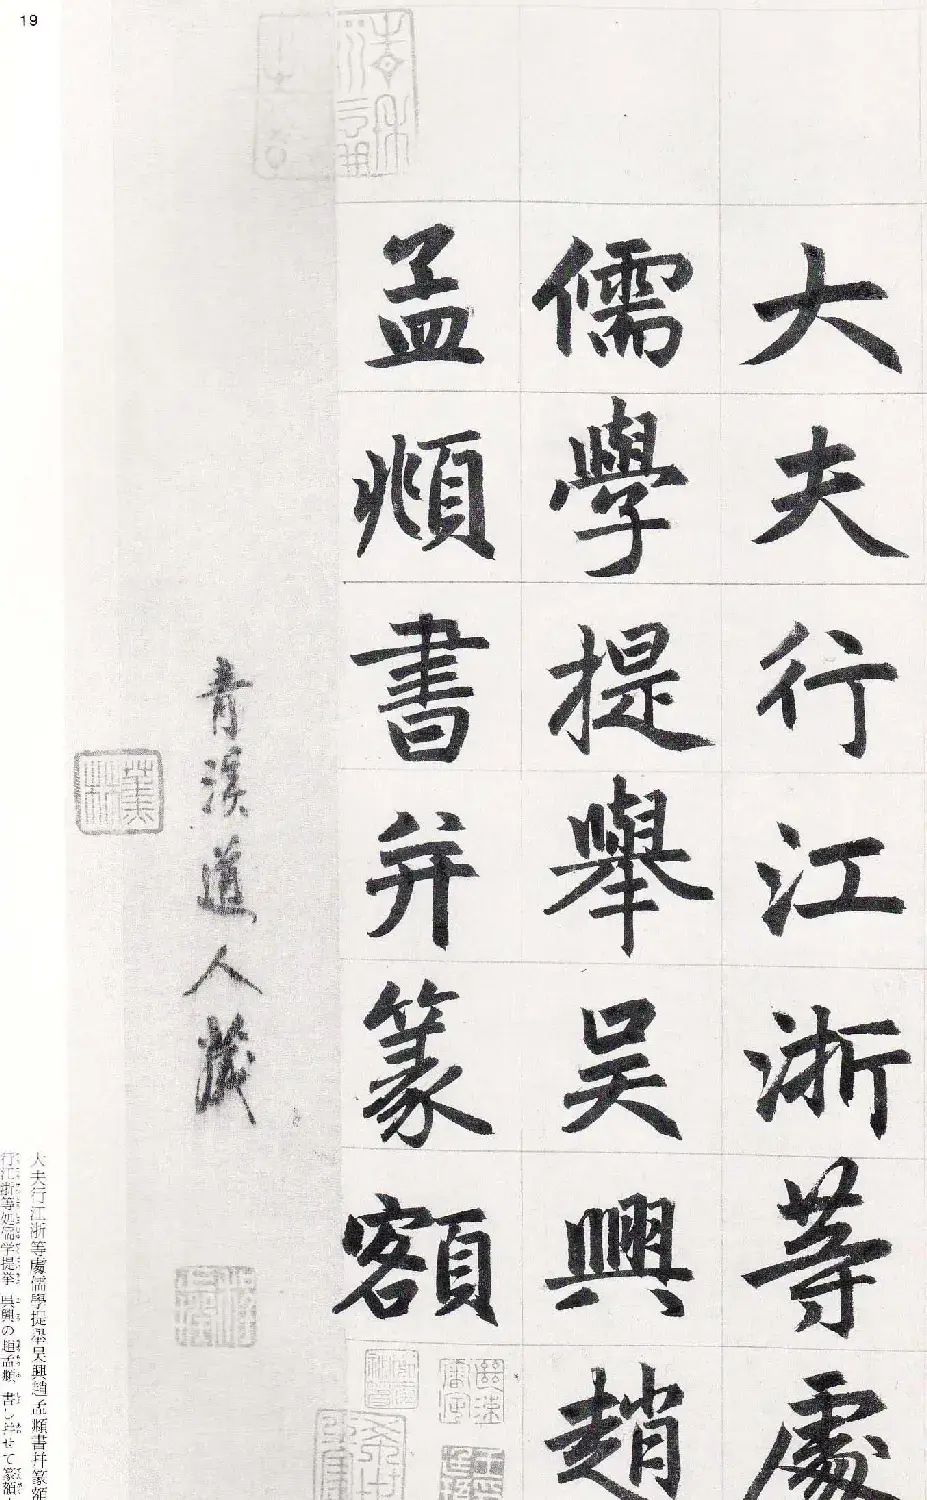 19
大夫行江浙等處
儒學提舉吳興趙
孟頫書并篆額
青溪道人藏
大夫行江浙等處儒學提舉吳興趙孟頫書幷篆額
行江浙等処儒学提挙 呉興の趙孟頫 書し并せて篆額